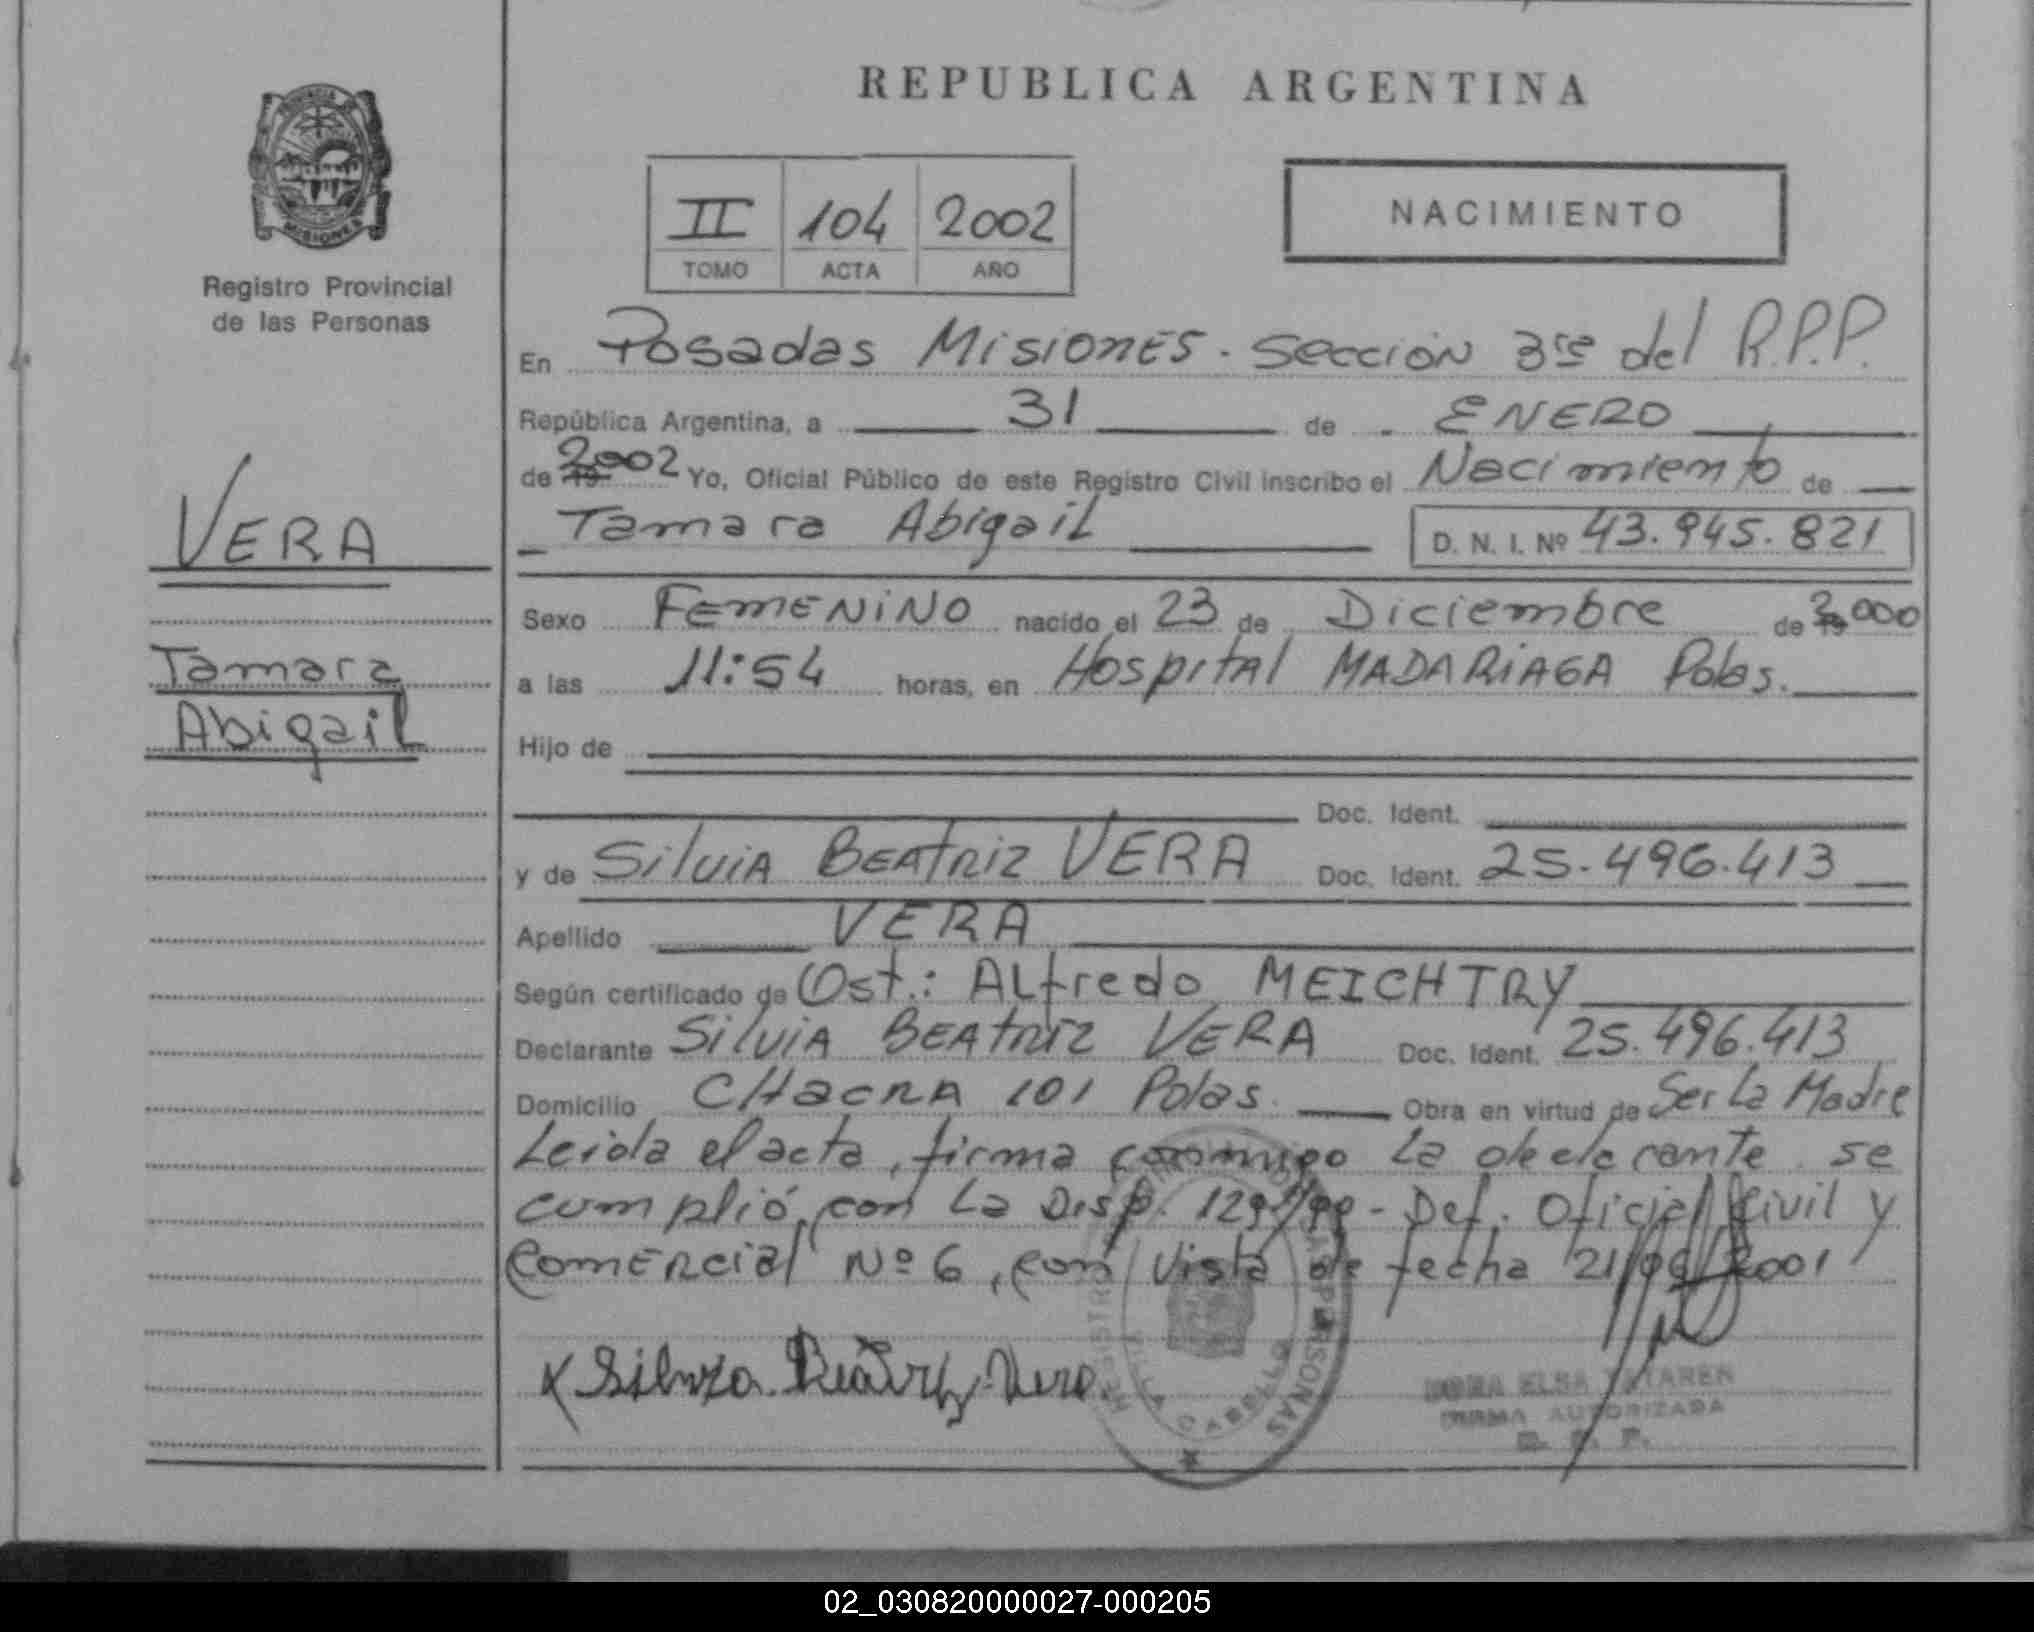 REPUBLICA ARGENTINA
MISIONES
Registro Provincial
de las Personas
II 104 2002
TOMO ACTA AÑO
NACIMIENTO
En Posadas Misiones. Sección 3ra del R.P.P.
República Argentina, a 31 de ENERO
de 2002 Yo, Oficial Público de este Registro Civil inscribo el Nacimiento de
Tamara Abigail D. N. I. Nº 43.945.821
VERA
Tamara
Abigail
Sexo FEMENINO nacido el 23 de Diciembre de 2000
a las 11:54 horas, en Hospital MADARIAGA Pdas.
Hijo de
Doc. Ident.
y de Silvia BEATRIZ VERA Doc. Ident. 25.496.413
Apellido VERA
Según certificado de Ost.: ALfredo MEICHTRY
Declarante Silvia BEATRIZ VERA Doc. Ident. 25.496.413
Domicilio CHacRA 101 Pdas. Obra en virtud de Ser La Madre
Leida el acta, firma conmigo La declarante se
cumplió con La Disp. Def. Oficial Civil y
Comercial Nº 6, con vista de fecha 2001
Silvia Beatriz Vera
ELSA
FIRMA AUTORIZADA
R. P. P.
PERSONAS
CABELLO
02_030820000027-000205